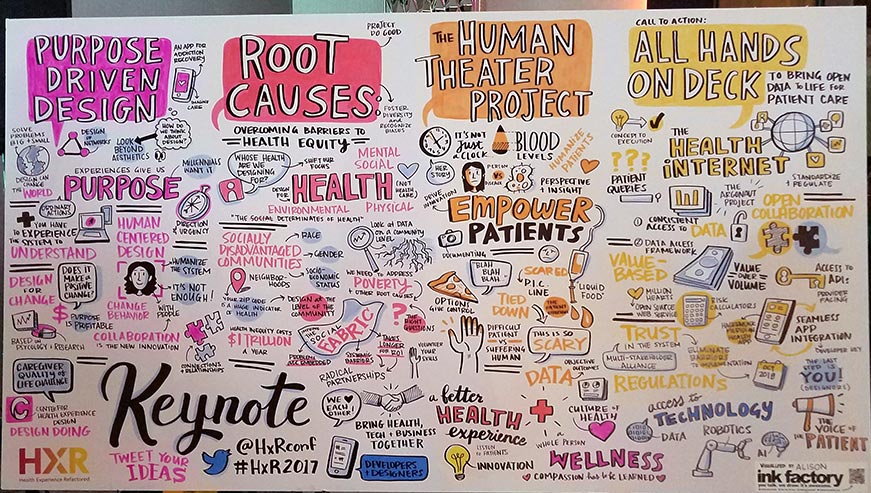 PURPOSE
DRIVEN
DESIGN
AN APP FOR
ADDICTION
RECOVERY
SOLVE
PROBLEMS
BIG + SMALL
DESIGN
OF
NETWORKS
LOOK
BEYOND
AESTHETICS
HOW DO
WE THINK
ABOUT
DESIGN?
DESIGN CAN
CHANGE THE
WORLD
EXPERIENCES GIVE US
PURPOSE
MILLENNIALS
WANT IT
DIRECTION
& URGENCY
ORDINARY
ACTIONS
YOU HAVE
TO EXPERIENCE
THE SYSTEM TO
UNDERSTAND
HUMAN
CENTERED
DESIGN
HUMANIZE
THE SYSTEM
IT'S NOT
ENOUGH!
DESIGN
FOR
CHANGE
DOES IT
MAKE A
POSITIVE
CHANGE?
CHANGE
BEHAVIOR
WITH
PEOPLE
$ PURPOSE
IS PROFITABLE
BASED IN
PSYCHOLOGY + RESEARCH
COLLABORATION
IS THE NEW INNOVATION
CONNECTIONS
+ RELATIONSHIPS
CAREGIVER
QUALITY OF
LIFE CHALLENGE
C CENTER FOR
HEALTH EXPERIENCE
DESIGN
DESIGN DOING
HXR
Health Experience Refactored
Keynote
TWEET YOUR
IDEAS
@HxRconf
#HxR2017
ROOT
CAUSES
PROJECT
DO GOOD
FOSTER
DIVERSITY
AND
RECOGNIZE
BIASES
OVERCOMING BARRIERS TO
HEALTH EQUITY
WHOSE HEALTH
ARE WE
DESIGNING
FOR?
SHIFT YOUR
FOCUS
MENTAL
SOCIAL
DESIGN
FOR
HEALTH
(NOT
HEALTH
CARE)
ENVIRONMENTAL
PHYSICAL
"THE SOCIAL DETERMINATES OF HEALTH"
SOCIALLY
DISADVANTAGED
COMMUNITIES
RACE
GENDER
SOCIO-
ECONOMIC
STATUS
NEIGHBOR-
HOODS
LOOK AT DATA
ON A COMMUNITY
LEVEL
WE NEED TO ADDRESS
POVERTY
+ OTHER ROOT CAUSES
YOUR ZIP CODE
IS A HUGE INDICATOR
OF HEALTH
DESIGN AT THE
LEVEL OF THE
COMMUNITY
HEALTH INEQUITY COSTS
$1 TRILLION
A YEAR
SOCIAL
FABRIC
THE
RIGHT
QUESTIONS
PROBLEMS
ARE EMBEDDED
SYSTEMIC
BARRIERS
TAKES
LONGER
FOR ROI
VOLUNTEER
YOUR
SKILLS
RADICAL
PARTNERSHIPS
WE
EACH
OTHER!
BRING HEALTH,
TECH + BUSINESS
TOGETHER
DEVELOPERS
+ DESIGNERS
THE
HUMAN
THEATER
PROJECT
IT'S NOT
JUST
A CLOCK
BLOOD
LEVELS
HUMANIZE
PATIENTS
HER
STORY
PERSON
VS
DISEASE
PERSPECTIVE
+ INSIGHT
DRIVE INNOVATION
EMPOWER
PATIENTS
DOCUMENTING
BLAH
BLAH
BLAH
SCARED
P.I.C.
LINE
"LIQUID
FOOD"
OPTIONS
GIVE CONTROL
TIED
DOWN
DIFFICULT
PATIENT
VS
SUFFERING
HUMAN
THIS IS SO
SCARY
DATA
OBJECTIVE
OUTCOMES
a better
HEALTH
experience
LISTEN
TO PATIENTS
INNOVATION
WHOLE PERSON
CULTURE OF
HEALTH
WELLNESS
COMPASSION
CALL TO ACTION:
ALL HANDS
ON DECK
TO BRING OPEN
DATA TO LIFE FOR
PATIENT CARE
CONCEPT TO
EXECUTION
???
PATIENT
QUERIES
THE
HEALTH
INTERNET
STANDARDIZE
+ REGULATE
THE
ARGONAUT
PROJECT
① CONSISTENT
ACCESS TO
DATA
OPEN
COLLABORATION
② DATA ACCESS
FRAMEWORK
VALUE-
BASED
VALUE
OVER
VOLUME
ACCESS TO
API:
MILLION
HEARTS
OPEN SOURCE
WEB SERVICE
RISK
CALCULATORS
SEAMLESS
APP
INTEGRATION
TRUST
IN THE SYSTEM
ELIMINATE
BARRIERS
TO
IMPLEMENTATION
DEVELOPER KEY
MULTI-STAKEHOLDER
ALLIANCE
REGULATIONS
OCT
2018
STEP
IS
YOU!
(DESIGNERS)
access to
TECHNOLOGY
DATA
ROBOTICS
AI
THE
VOICE
OF THE
PATIENT
VISUALIZED BY ALISON
ink factory
you talk. we draw. it's awesome.